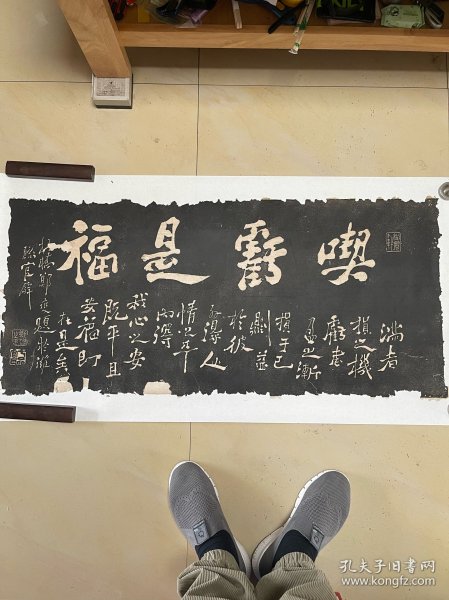 喫虧是福
滿者
損之機
虧者
盈之漸
損于己
則益
於彼
外得人
情之平
內得
我心之安
既平且
安福即
在是矣
板橋鄭燮題於濰
縣官廨
孔夫子旧书网
www.kongfz.com